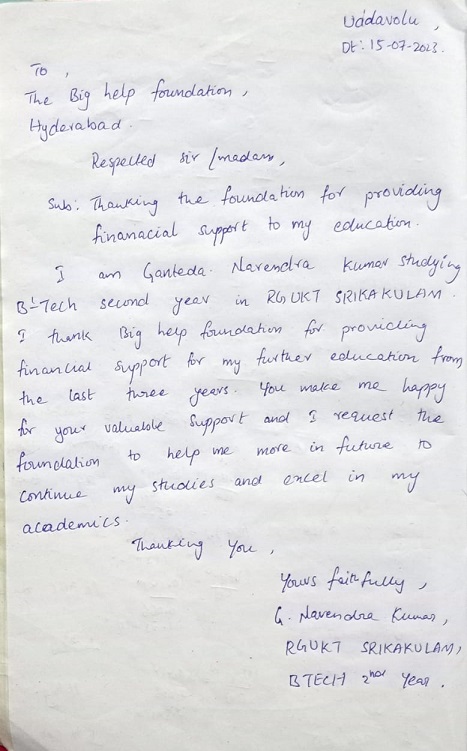 Uddavolu,
Dt: 15-07-2023.
To,
The Big help foundation,
Hyderabad.
Respected sir/madam,
Sub: Thanking the foundation for providing
finanacial support to my education.
I am Ganteda. Narendra Kumar studying
B-Tech second year in RGUKT SRIKAKULAM.
I thank Big help foundation for providing
financial support for my further education from
the last three years. You make me happy
for your valuable support and I request the
foundation to help me more in future to
continue my studies and excel in my
academics.
Thanking You,
Yours faithfully,
G. Narendra Kumar,
RGUKT SRIKAKULAM,
BTECH 2nd Year.